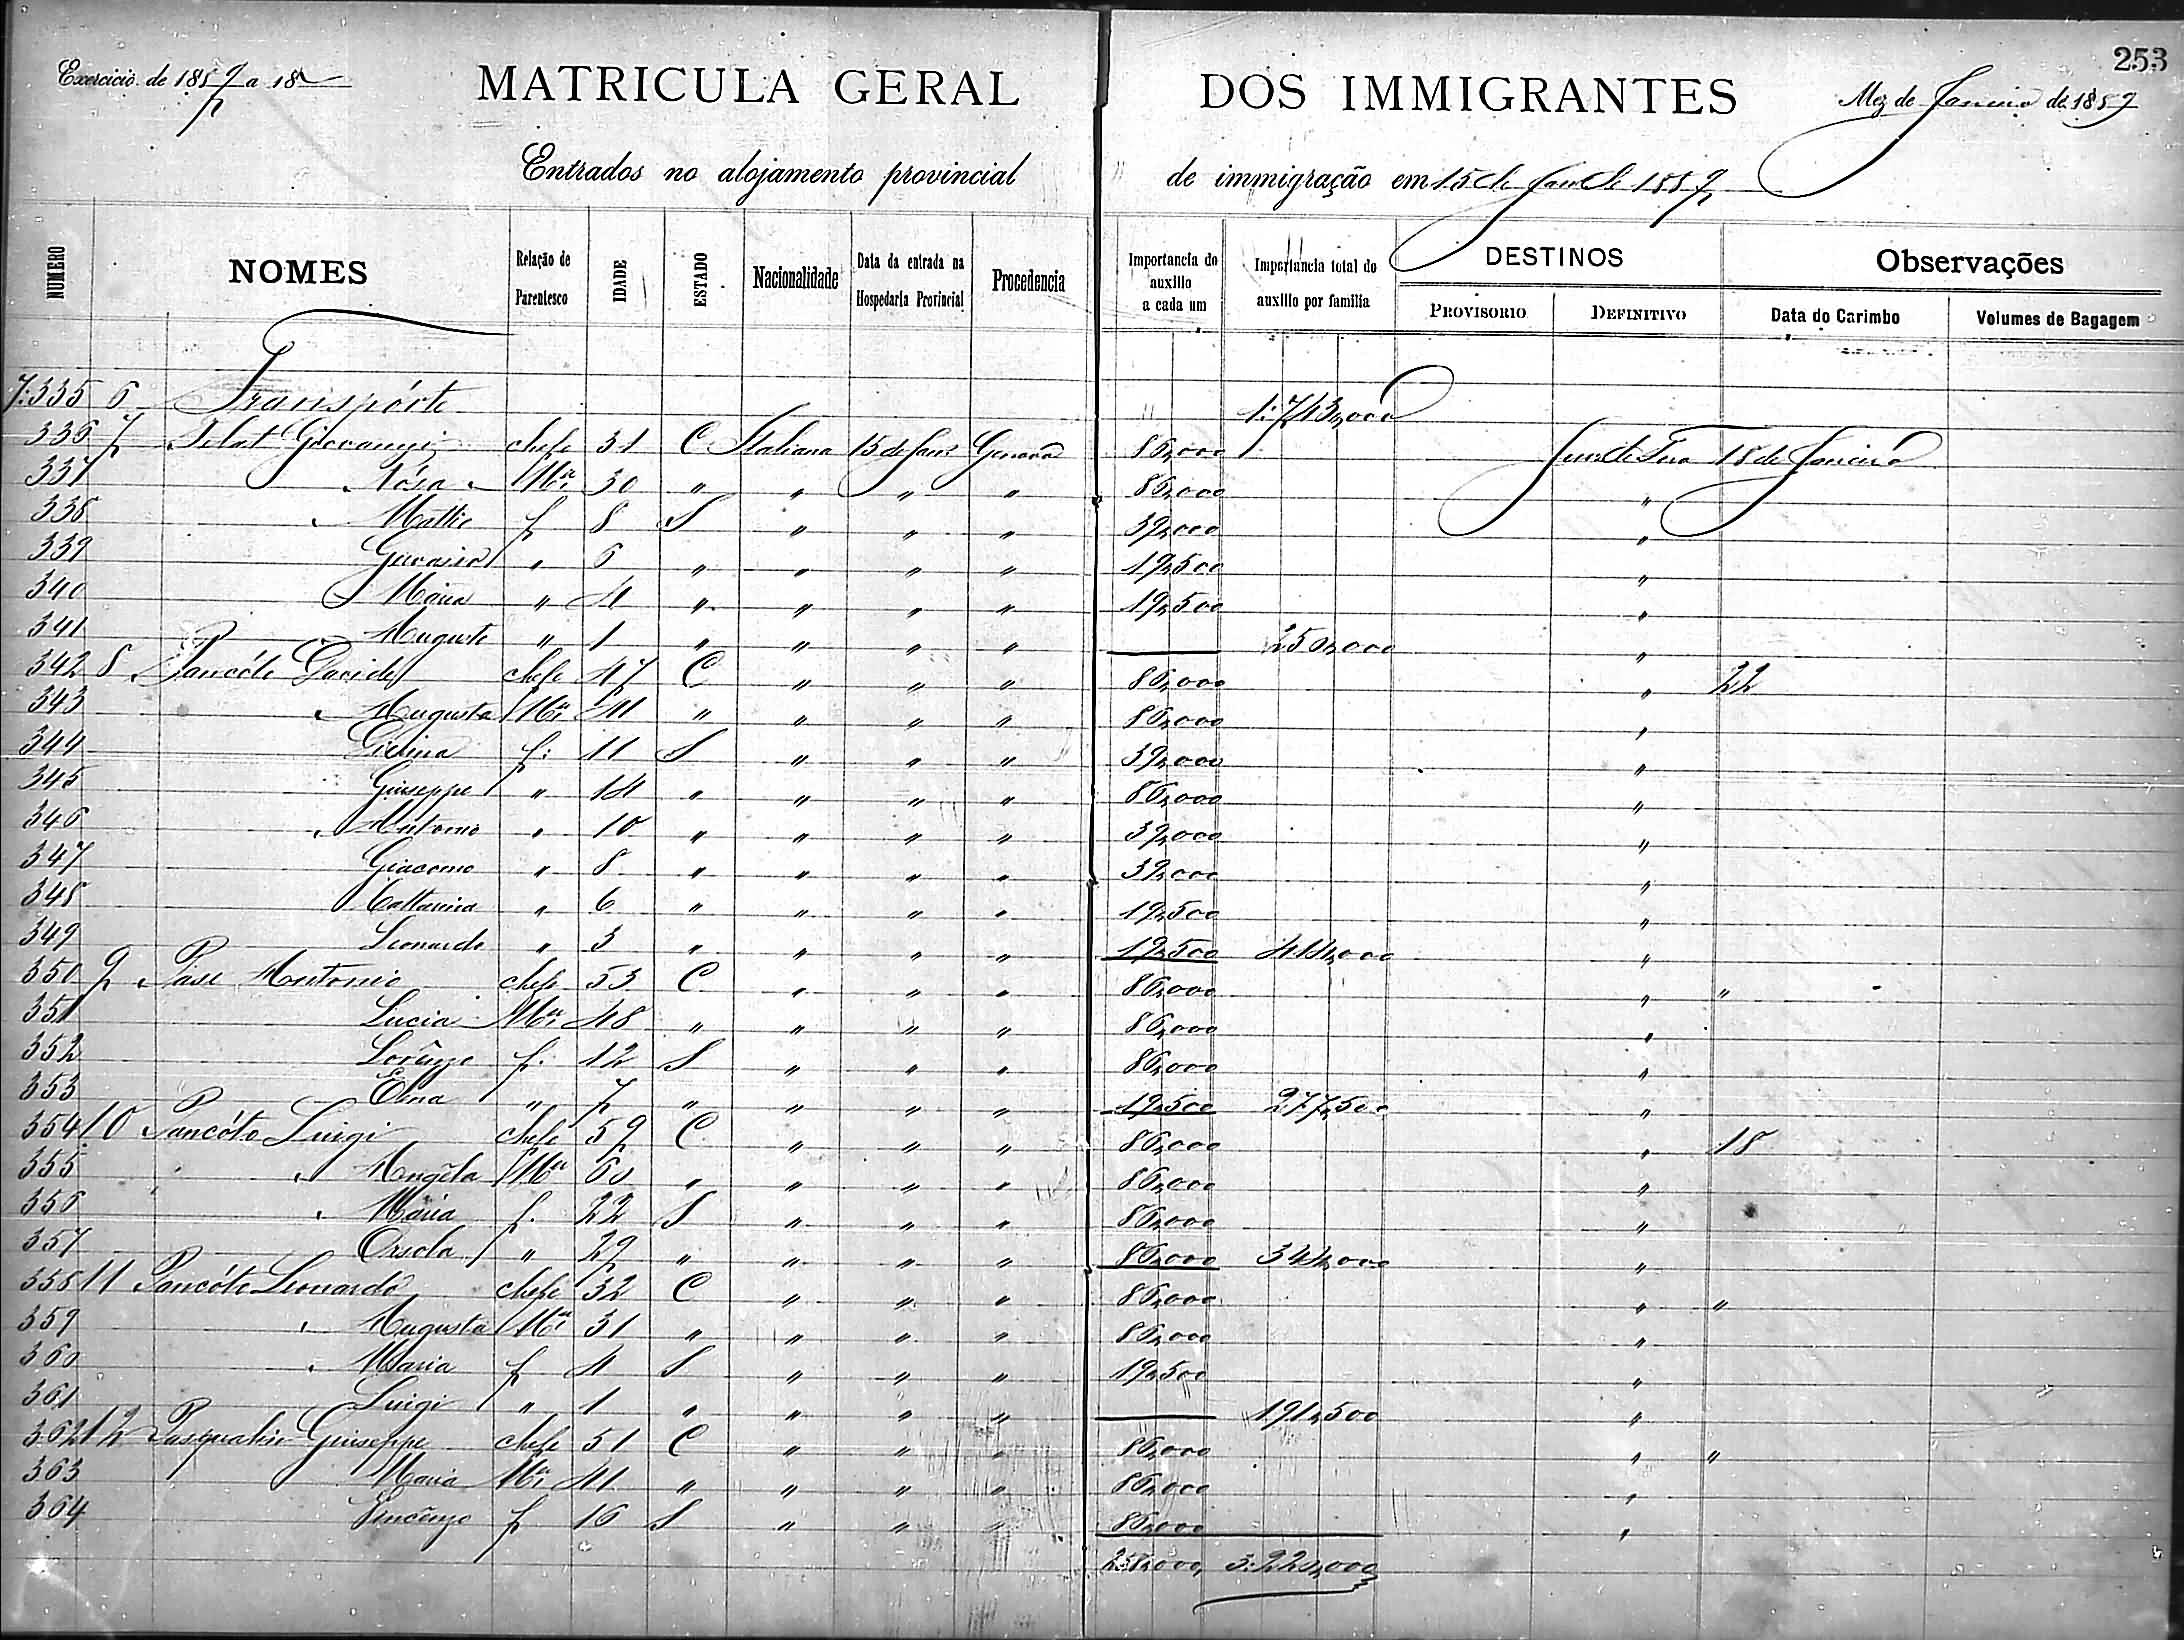 253
Exercicio de 1889 a 18
MATRICULA GERAL DOS IMMIGRANTES
Mez de Janeiro de 1889
Entrados no alojamento provincial de immigração em 15 de Jan de 1889
NUMERO NOMES Relação de Parentesco IDADE ESTADO Nacionalidade Data da entrada na Hospedaria Provincial Procedencia Importancia do auxilio a cada um Importancia total do auxilio por familia DESTINOS PROVISORIO DEFINITIVO Observações Data do Carimbo Volumes de Bagagem
7:335 6 Transpórte 1:743,000
336 7 Giovanni chefe 31 C Italiana 15 de Janr Genova 86,000 Juiz de Fora 18 de Janeiro
337 " Mer 30 " " " " 86,000 "
338 " f 8 S " " " 39,000 "
339 " 6 " " " " 19,500 "
340 Maria " 4 " " " " 19,500 "
341 Auguste " 1 " " " " — 250,000 "
342 8 Pancóte chefe 47 C " " " 86,000 " 22
343 " Augusta Mer 41 " " " " 86,000 "
344 f: 11 S " " " 39,000 "
345 Giuseppe " 14 " " " " 86,000 "
346 " Antonio " 10 " " " " 39,000 "
347 Giacomo " 8 " " " " 39,000 "
348 Cattarina " 6 " " " " 19,500 "
349 Leonardo " 3 " " " " 19,500 414,000 "
350 9 Pase Antonio chefe 53 C " " " 86,000 " "
351 Lucia Mer 48 " " " " 86,000 "
352 Lorenzo f. 12 S " " " 86,000 "
353 Elena " 7 " " " " 19,500 277,500 "
354 10 Pancóto Luigi chefe 59 C " " " 86,000 " 18
355 " Angela Mer 60 " " " " 86,000 "
356 " Maria f. 22 S " " " 86,000 "
357 Orsola " 29 " " " " 86,000 344,000 "
358 11 Pancóto Leonardo chefe 32 C " " " 86,000 " "
359 " Augusta Mer 31 " " " " 86,000 "
360 " Maria f 4 S " " " 19,500 "
361 Luigi " 1 " " " " — 191,500 "
362 12 Giuseppe chefe 51 C " " " 86,000 " "
363 Maria Mer 41 " " " " 86,000 "
364 Vincenzo f 16 S " " " 86,000 "
258,000 3:220,000